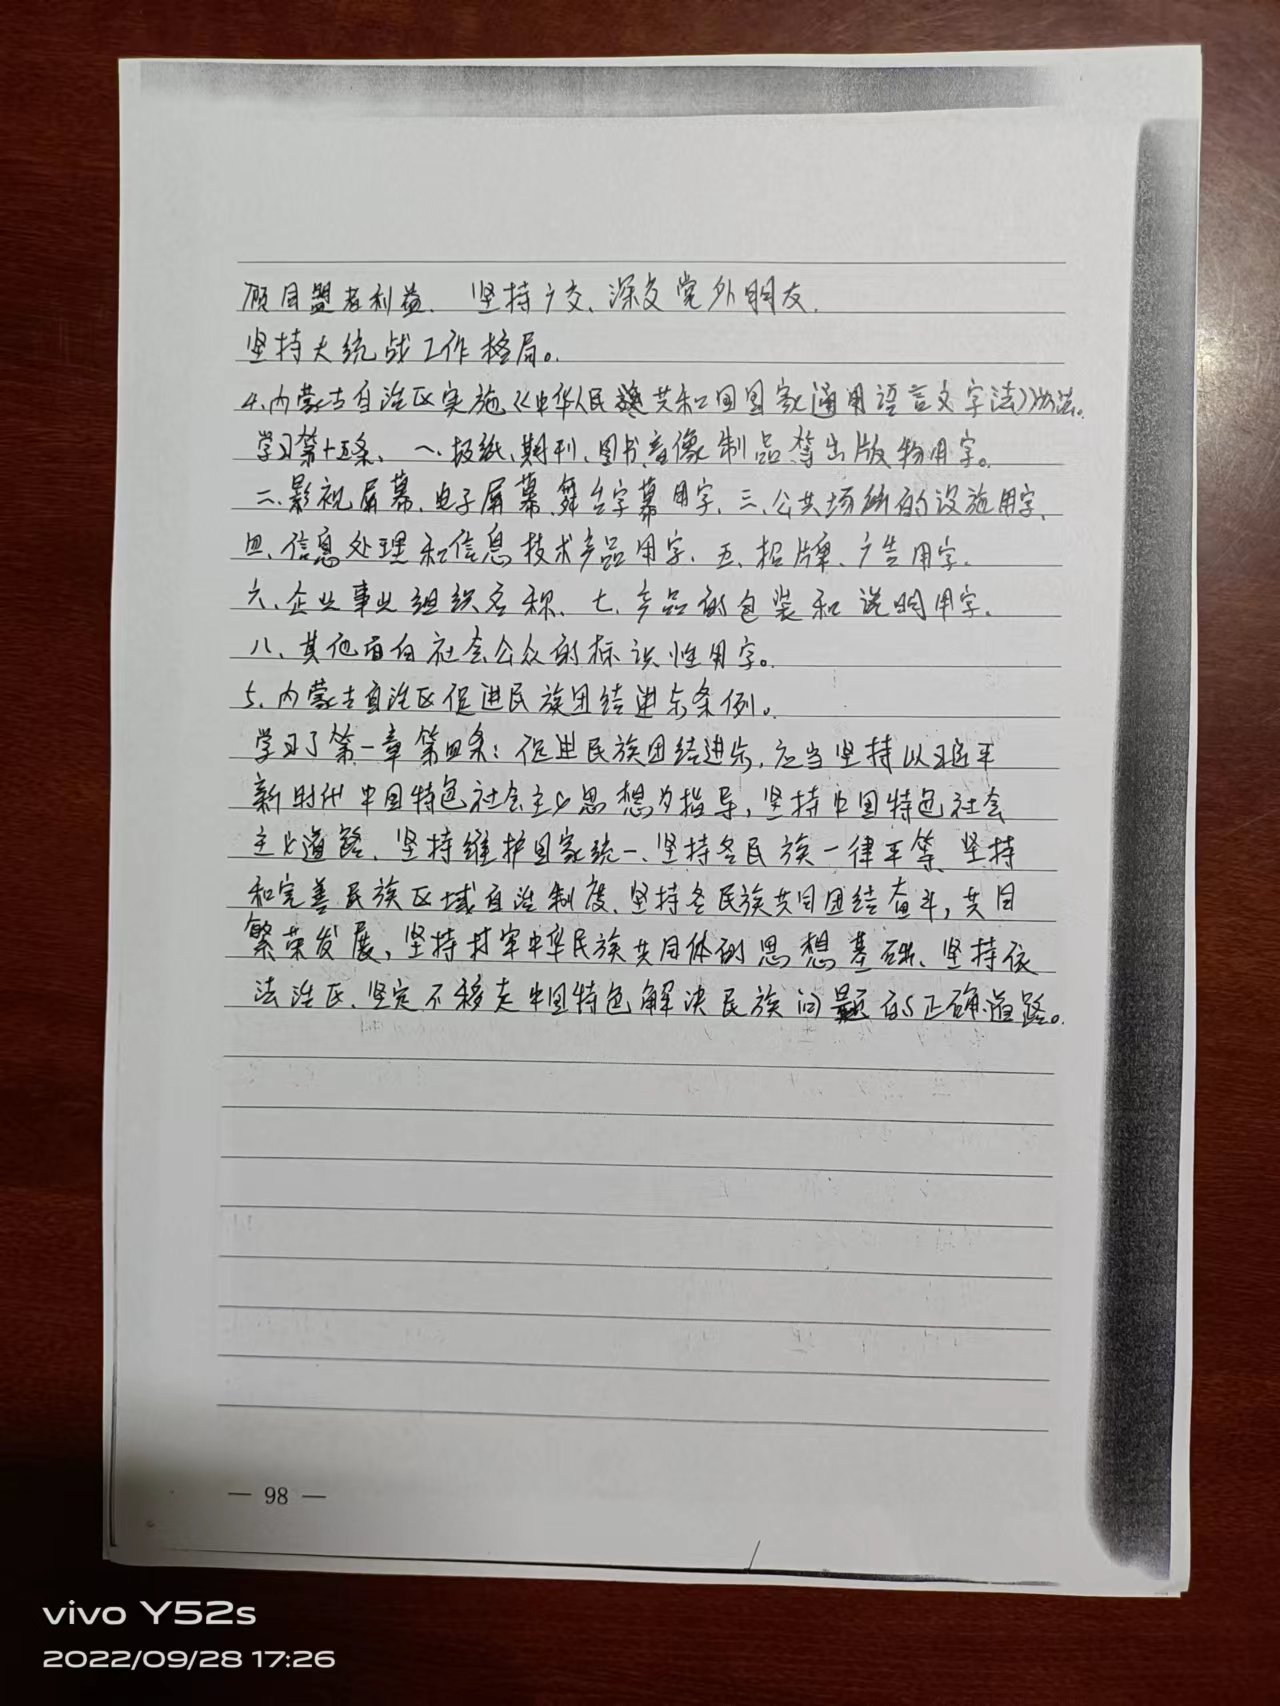 顾同盟者利益、坚持广交、深交党外朋友、
坚持大统战工作格局。
4、内蒙古自治区实施《中华人民共和国国家通用语言文字法》办法。
学习第十五条、一、报纸、期刊、图书、音像制品等出版物用字。
二、影视屏幕、电子屏幕、舞台字幕用字、三、公共场所的设施用字、
四、信息处理和信息技术产品用字、五、招牌、广告用字、
六、企业事业组织名称、七、产品的包装和说明用字、
八、其他面向社会公众的标识性用字。
5、内蒙古自治区促进民族团结进步条例。
学习了第一章第四条：促进民族团结进步，应当坚持以习近平
新时代中国特色社会主义思想为指导，坚持中国特色社会
主义道路、坚持维护国家统一、坚持各民族一律平等、坚持
和完善民族区域自治制度、坚持各民族共同团结奋斗，共同
繁荣发展，坚持打牢中华民族共同体的思想基础、坚持依
法治区、坚定不移走中国特色解决民族问题的正确道路。
— 98 —
vivo Y52s
2022/09/28 17:26